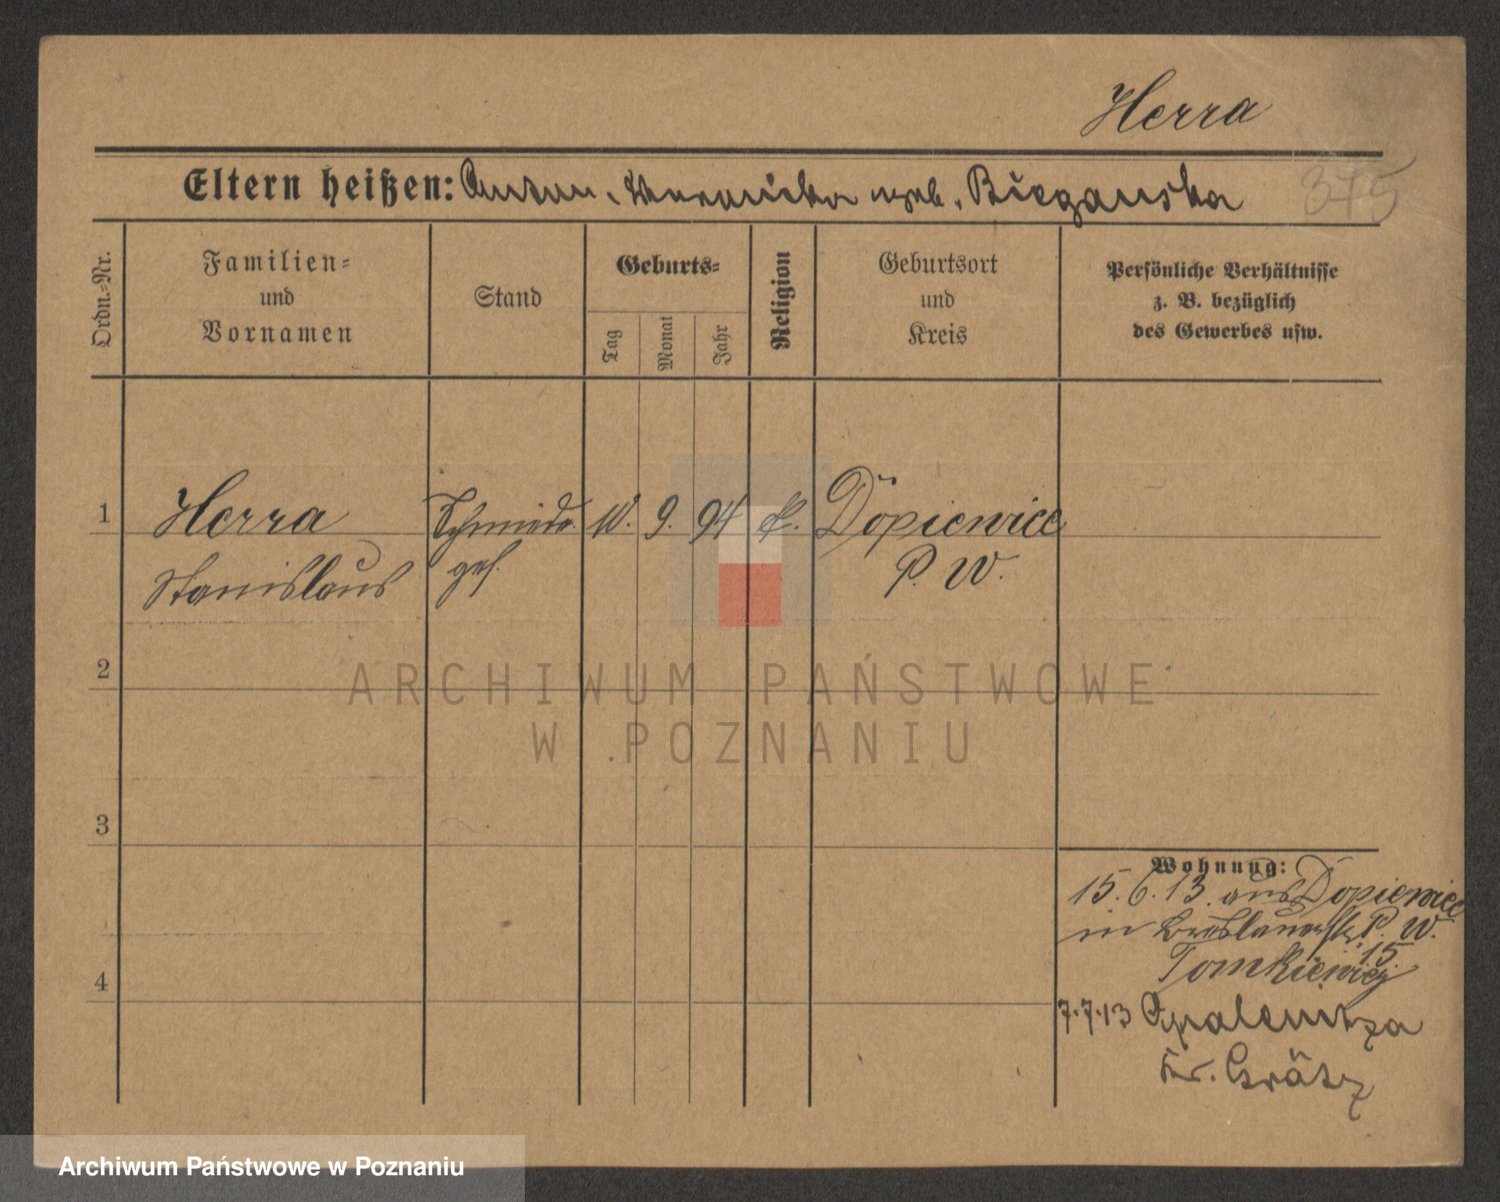 Herra
Eltern heißen: Anton, Veronika geb. Bieganska
375
Ordn.-Nr.
Familien-
und
Vornamen
Stand
Geburts-
Tag
Monat
Jahr
Religion
Geburtsort
und
Kreis
Persönliche Verhältnisse
z. B. bezüglich
des Gewerbes usw.
1 Herra Schmiede 10. 9. 94 k. Dopiewice
Stanislaus ges. P. W.
2
ARCHIWUM PAŃSTWOWE
W POZNANIU
3
Wohnung:
15. 6. 13. aus Dopiewice
in Breslauerstr. P. W.
15
Tomkiewicz
4
7.7.13 Opalenitza
Kr. Grätz
Archiwum Państwowe w Poznaniu